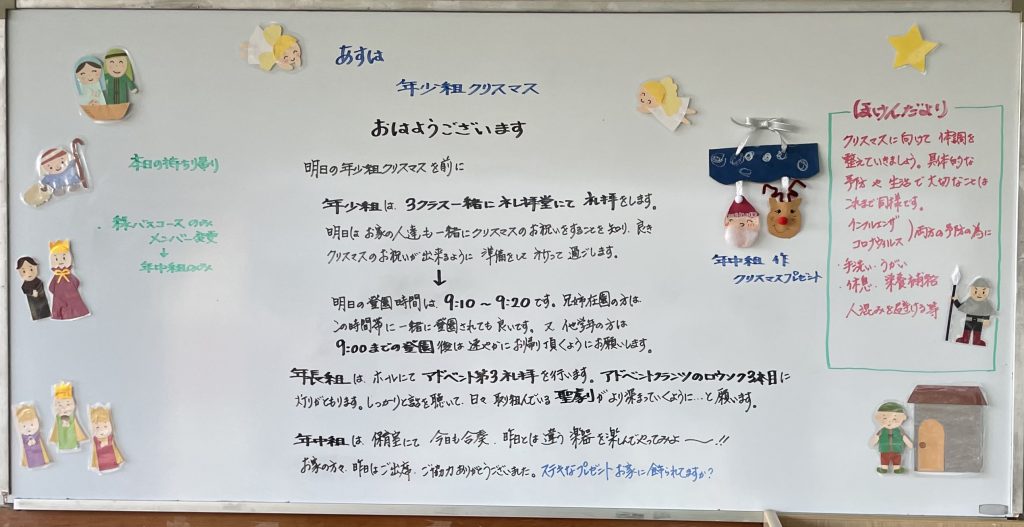 あすは
年少組クリスマス
おはようございます
明日の年少組クリスマスを前に
年少組は、3クラス一緒に礼拝堂にて 礼拝をします。
明日は お家の人達も一緒にクリスマスのお祝いをすることを知り、良き
クリスマスのお祝いが出来るように 準備をして 過ごします。
↓
明日の登園時間は、9:10〜9:20です。兄姉在園の方は
この時間帯に一緒に登園されても良いです。又 他学年の方は
9:00までの登園後は 速やかにお帰り頂くようにお願いします。
年長組は、ホールにて アドベント第3礼拝を行います。アドベントクランツのロウソク3本目に
灯りがともります。しっかりと話を聴いて、日々取り組んでいる 聖劇がより深まっていくように…と願います。
年中組は、保育室にて 今日も合奏、昨日とは違う楽器を楽んでやってみよ〜!!
お家の方々、昨日はご出席、ご協力ありがとうございました。ステキなプレゼント お家に飾られてますか?
本日の持ち帰り
バスコースのみ
メンバー変更
→年中組のみ
年中組 作
クリスマスプレゼント
ほけんだより
クリスマスに向けて 体調を
整えていきましょう。具体的な
予防や生活で大切なことは
これまで同様です。
インフルエンザ
コロナウィルス)両方の予防の為に
・手洗い・うがい
・休息・栄養補給
人混みを避ける等